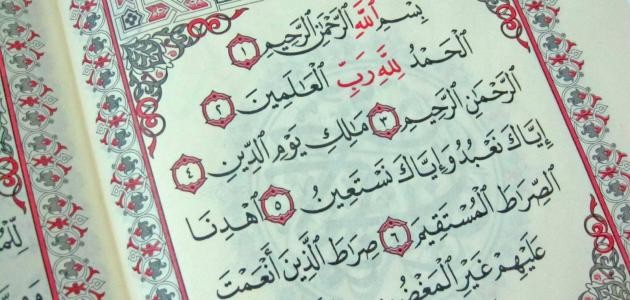 بِسْمِ ٱللَّهِ ٱلرَّحْمَٰنِ ٱلرَّحِيمِ ١
ٱلْحَمْدُ لِلَّهِ رَبِّ ٱلْعَالَمِينَ ٢
ٱلرَّحْمَٰنِ ٱلرَّحِيمِ ٣ مَالِكِ يَوْمِ ٱلدِّينِ ٤
إِيَّاكَ نَعْبُدُ وَإِيَّاكَ نَسْتَعِينُ ٥ ٱهْدِنَا
ٱلصِّرَاطَ ٱلْمُسْتَقِيمَ ٦ صِرَاطَ ٱلَّذِينَ أَنْعَمْتَ
عَلَيْهِمْ غَيْرِ ٱلْمَغْضُ